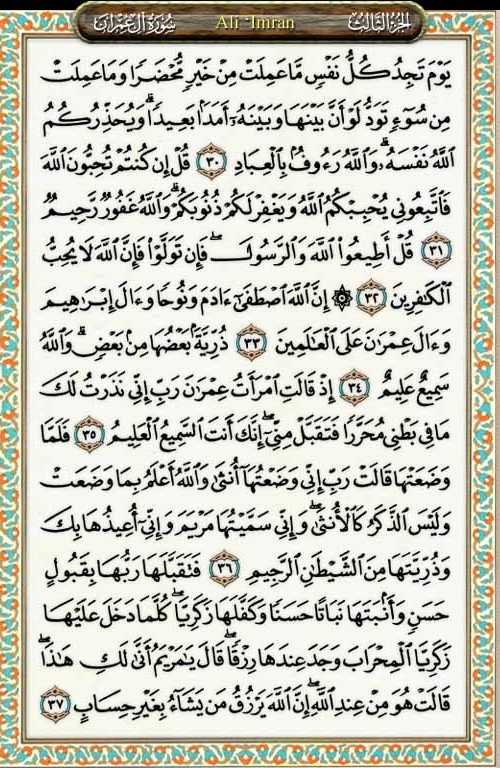 سُورَةُ آلِ عِمْرَانَ Ali 'Imran الجُزْءُ الثَّالِثُ
يَوْمَ تَجِدُ كُلُّ نَفْسٍ مَّا عَمِلَتْ مِنْ خَيْرٍ مُّحْضَرًا وَمَا عَمِلَتْ
مِن سُوٓءٍ تَوَدُّ لَوْ أَنَّ بَيْنَهَا وَبَيْنَهُۥٓ أَمَدًۢا بَعِيدًا ۗ وَيُحَذِّرُكُمُ
ٱللَّهُ نَفْسَهُۥ ۗ وَٱللَّهُ رَءُوفٌۢ بِٱلْعِبَادِ ٣٠ قُلْ إِن كُنتُمْ تُحِبُّونَ ٱللَّهَ
فَٱتَّبِعُونِى يُحْبِبْكُمُ ٱللَّهُ وَيَغْفِرْ لَكُمْ ذُنُوبَكُمْ ۗ وَٱللَّهُ غَفُورٌ رَّحِيمٌ
٣١ قُلْ أَطِيعُوا۟ ٱللَّهَ وَٱلرَّسُولَ ۖ فَإِن تَوَلَّوْا۟ فَإِنَّ ٱللَّهَ لَا يُحِبُّ
ٱلْكَٰفِرِينَ ٣٢ ۞ إِنَّ ٱللَّهَ ٱصْطَفَىٰٓ ءَادَمَ وَنُوحًا وَءَالَ إِبْرَٰهِيمَ
وَءَالَ عِمْرَٰنَ عَلَى ٱلْعَٰلَمِينَ ٣٣ ذُرِّيَّةًۢ بَعْضُهَا مِنۢ بَعْضٍ ۗ وَٱللَّهُ
سَمِيعٌ عَلِيمٌ ٣٤ إِذْ قَالَتِ ٱمْرَأَتُ عِمْرَٰنَ رَبِّ إِنِّى نَذَرْتُ لَكَ
مَا فِى بَطْنِى مُحَرَّرًا فَتَقَبَّلْ مِنِّىٓ ۖ إِنَّكَ أَنتَ ٱلسَّمِيعُ ٱلْعَلِيمُ ٣٥ فَلَمَّا
وَضَعَتْهَا قَالَتْ رَبِّ إِنِّى وَضَعْتُهَآ أُنثَىٰ وَٱللَّهُ أَعْلَمُ بِمَا وَضَعَتْ
وَلَيْسَ ٱلذَّكَرُ كَٱلْأُنثَىٰ ۖ وَإِنِّى سَمَّيْتُهَا مَرْيَمَ وَإِنِّىٓ أُعِيذُهَا بِكَ
وَذُرِّيَّتَهَا مِنَ ٱلشَّيْطَٰنِ ٱلرَّجِيمِ ٣٦ فَتَقَبَّلَهَا رَبُّهَا بِقَبُولٍ
حَسَنٍ وَأَنۢبَتَهَا نَبَاتًا حَسَنًا وَكَفَّلَهَا زَكَرِيَّا ۖ كُلَّمَا دَخَلَ عَلَيْهَا
زَكَرِيَّا ٱلْمِحْرَابَ وَجَدَ عِندَهَا رِزْقًا ۖ قَالَ يَٰمَرْيَمُ أَنَّىٰ لَكِ هَٰذَا ۖ
قَالَتْ هُوَ مِنْ عِندِ ٱللَّهِ ۖ إِنَّ ٱللَّهَ يَرْزُقُ مَن يَشَآءُ بِغَيْرِ حِسَابٍ ٣٧